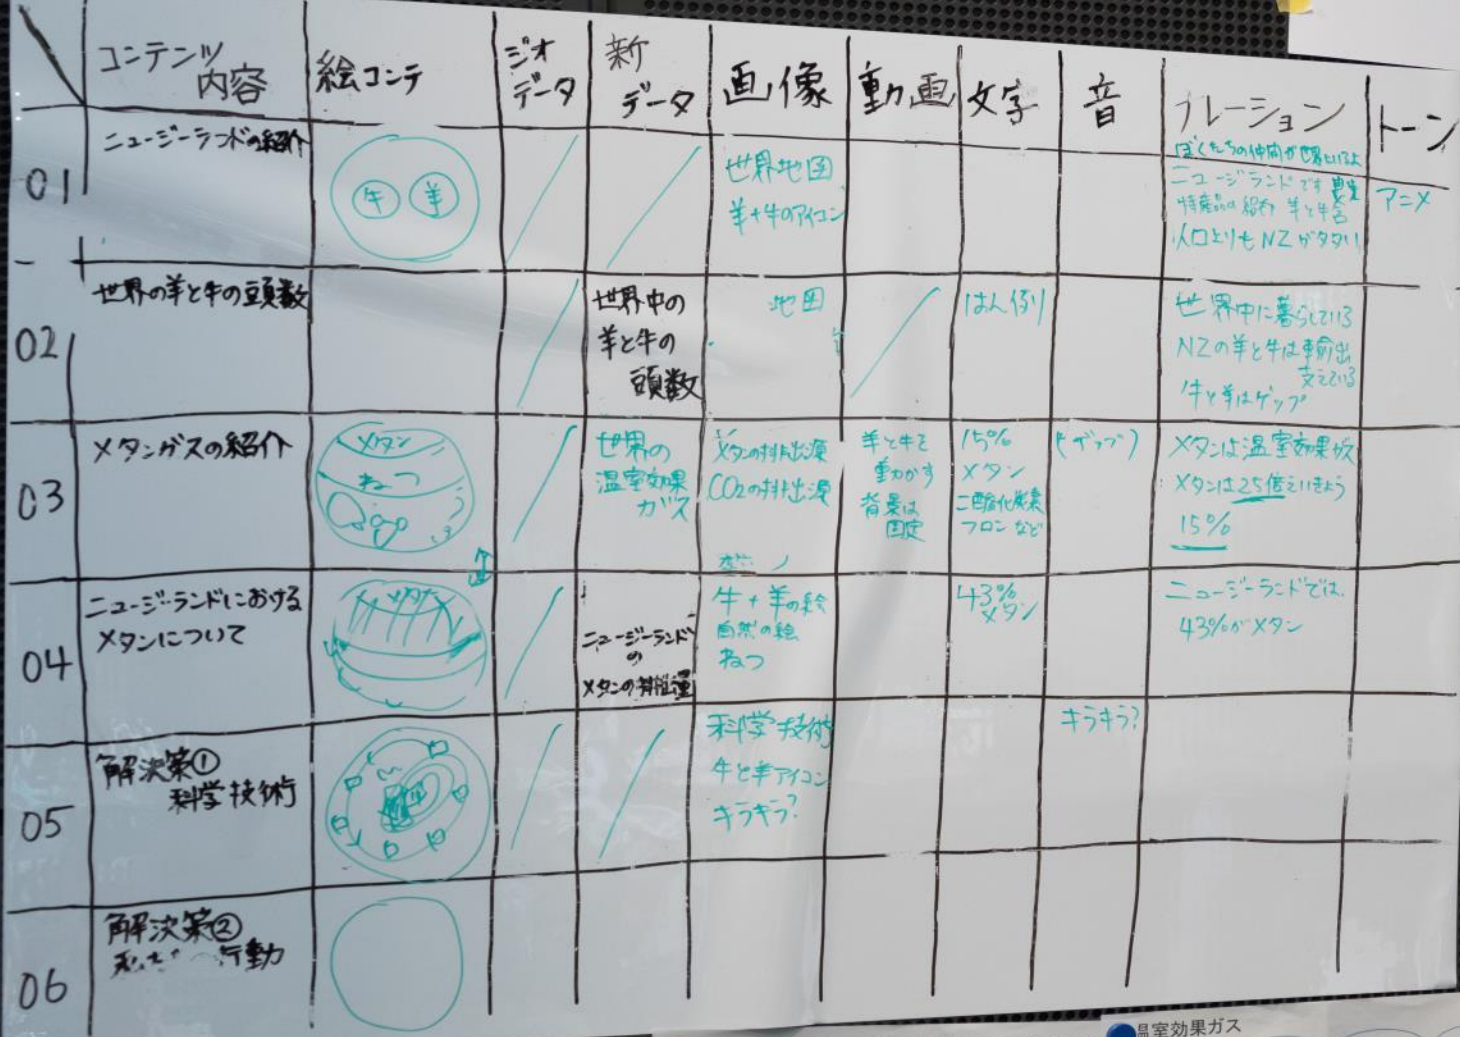 コンテンツ
内容
絵コンテ
ジオ
データ
新
データ
画像
動画
文字
音
ナレーション
トーン
01
ニュージーランドの紹介
牛 羊
世界地図
羊+牛のアイコン
ぼくたちの仲間が世界にいるよ
ニュージーランドです
特産品の紹介 羊と牛
人口よりもNZが
アニメ
02
世界の羊と牛の頭数
世界中の
羊と牛の
頭数
地図
はん例り
世界中に暮らしている
NZの羊と牛は輸出
支えている
牛と羊はゲップ
03
メタンガスの紹介
メタン
ねつ
世界の
温室効果
ガス
メタンの排出源
CO2の排出源
羊と牛を
動かす
背景は
固定
15%
メタン
二酸化炭素
フロン など
(ゲップ)
メタンは温室効果ガス
メタンは25倍えいきょう
15%
04
ニュージーランドにおける
メタンについて
メタン
ニュージーランド
の
メタンの
牛+羊の絵
自然の絵
ねつ
43%
メタン
ニュージーランドでは、
43%がメタン
05
解決策①
科学技術
科学技術
牛と羊アイコン
キラキラ?
キラキラ?
06
解決策②
行動
温室効果ガス